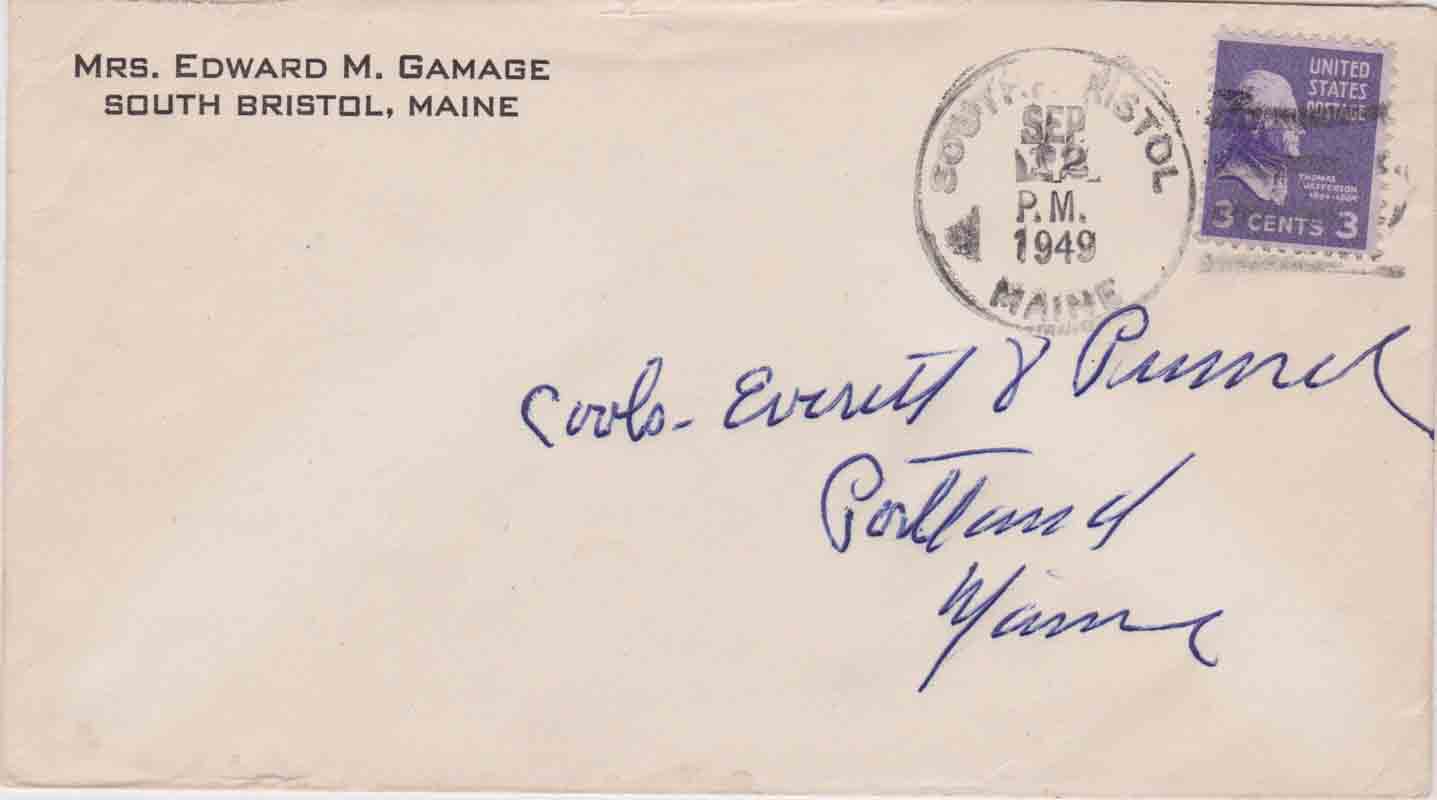 MRS. EDWARD M. GAMAGE
SOUTH BRISTOL, MAINE
SOUTH BRISTOL
SEP
12
P.M.
1949
MAINE
UNITED
STATES
POSTAGE
THOMAS
JEFFERSON
3 CENTS 3
Cooks- Everett & Pennel
Portland
Maine